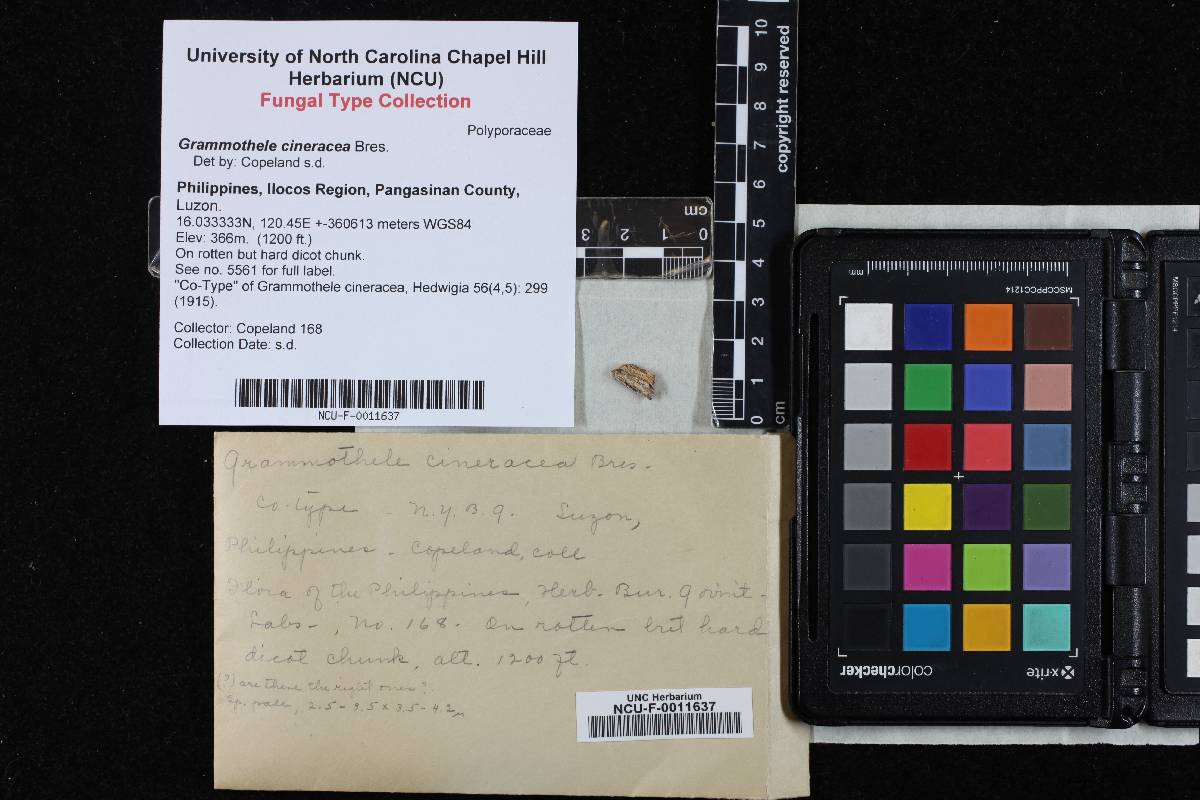 University of North Carolina Chapel Hill
Herbarium (NCU)
Fungal Type Collection
Polyporaceae
Grammothele cineracea Bres.
Det by: Copeland s.d.
Philippines, Ilocos Region, Pangasinan County,
Luzon.
16.033333N, 120.45E +-360613 meters WGS84
Elev: 366m. (1200 ft.)
On rotten but hard dicot chunk.
See no. 5561 for full label.
"Co-Type" of Grammothele cineracea, Hedwigia 56(4,5): 299
(1915).
Collector: Copeland 168
Collection Date: s.d.
NCU-F-0011637
cm
0 1 2 3
10
9
8
7
6
5
4
3
2
1
0
cm
copyright reserved
Grammothele cineracea Bres.
Co-type - N.Y.B.G. Luzon,
Philippines - Copeland, coll
Flora of the Philippines, Herb. Bur. Govn't.
Labs-, No. 168. On rotten but hard
dicot chunk, alt. 1200 ft.
(?) are these the right ones?
Sp. pale, 2.5-3.5 x 3.5-4.2µ
UNC Herbarium
NCU-F-0011637
mm
MSCCPPCC1214
x-rite
colorchecker